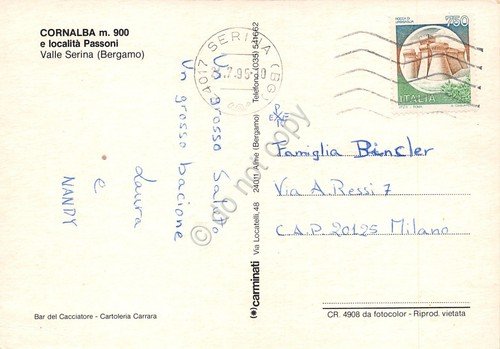 CORNALBA m. 900
e località Passoni
Valle Serina (Bergamo)
Un grosso Saluto,
Un grosso bacione
Laura
e
NANDY
Bar del Cacciatore - Cartoleria Carrara
(•) carminati Via Locatelli, 48 24011 Alme (Bergamo) Telefono (035) 541662
SERINA (BG)
750
ITALIA
Famiglia Bincler
Via A. Ressi 7
C.A.P. 20125 Milano
CR. 4908 da fotocolor - Riprod. vietata
do not copy